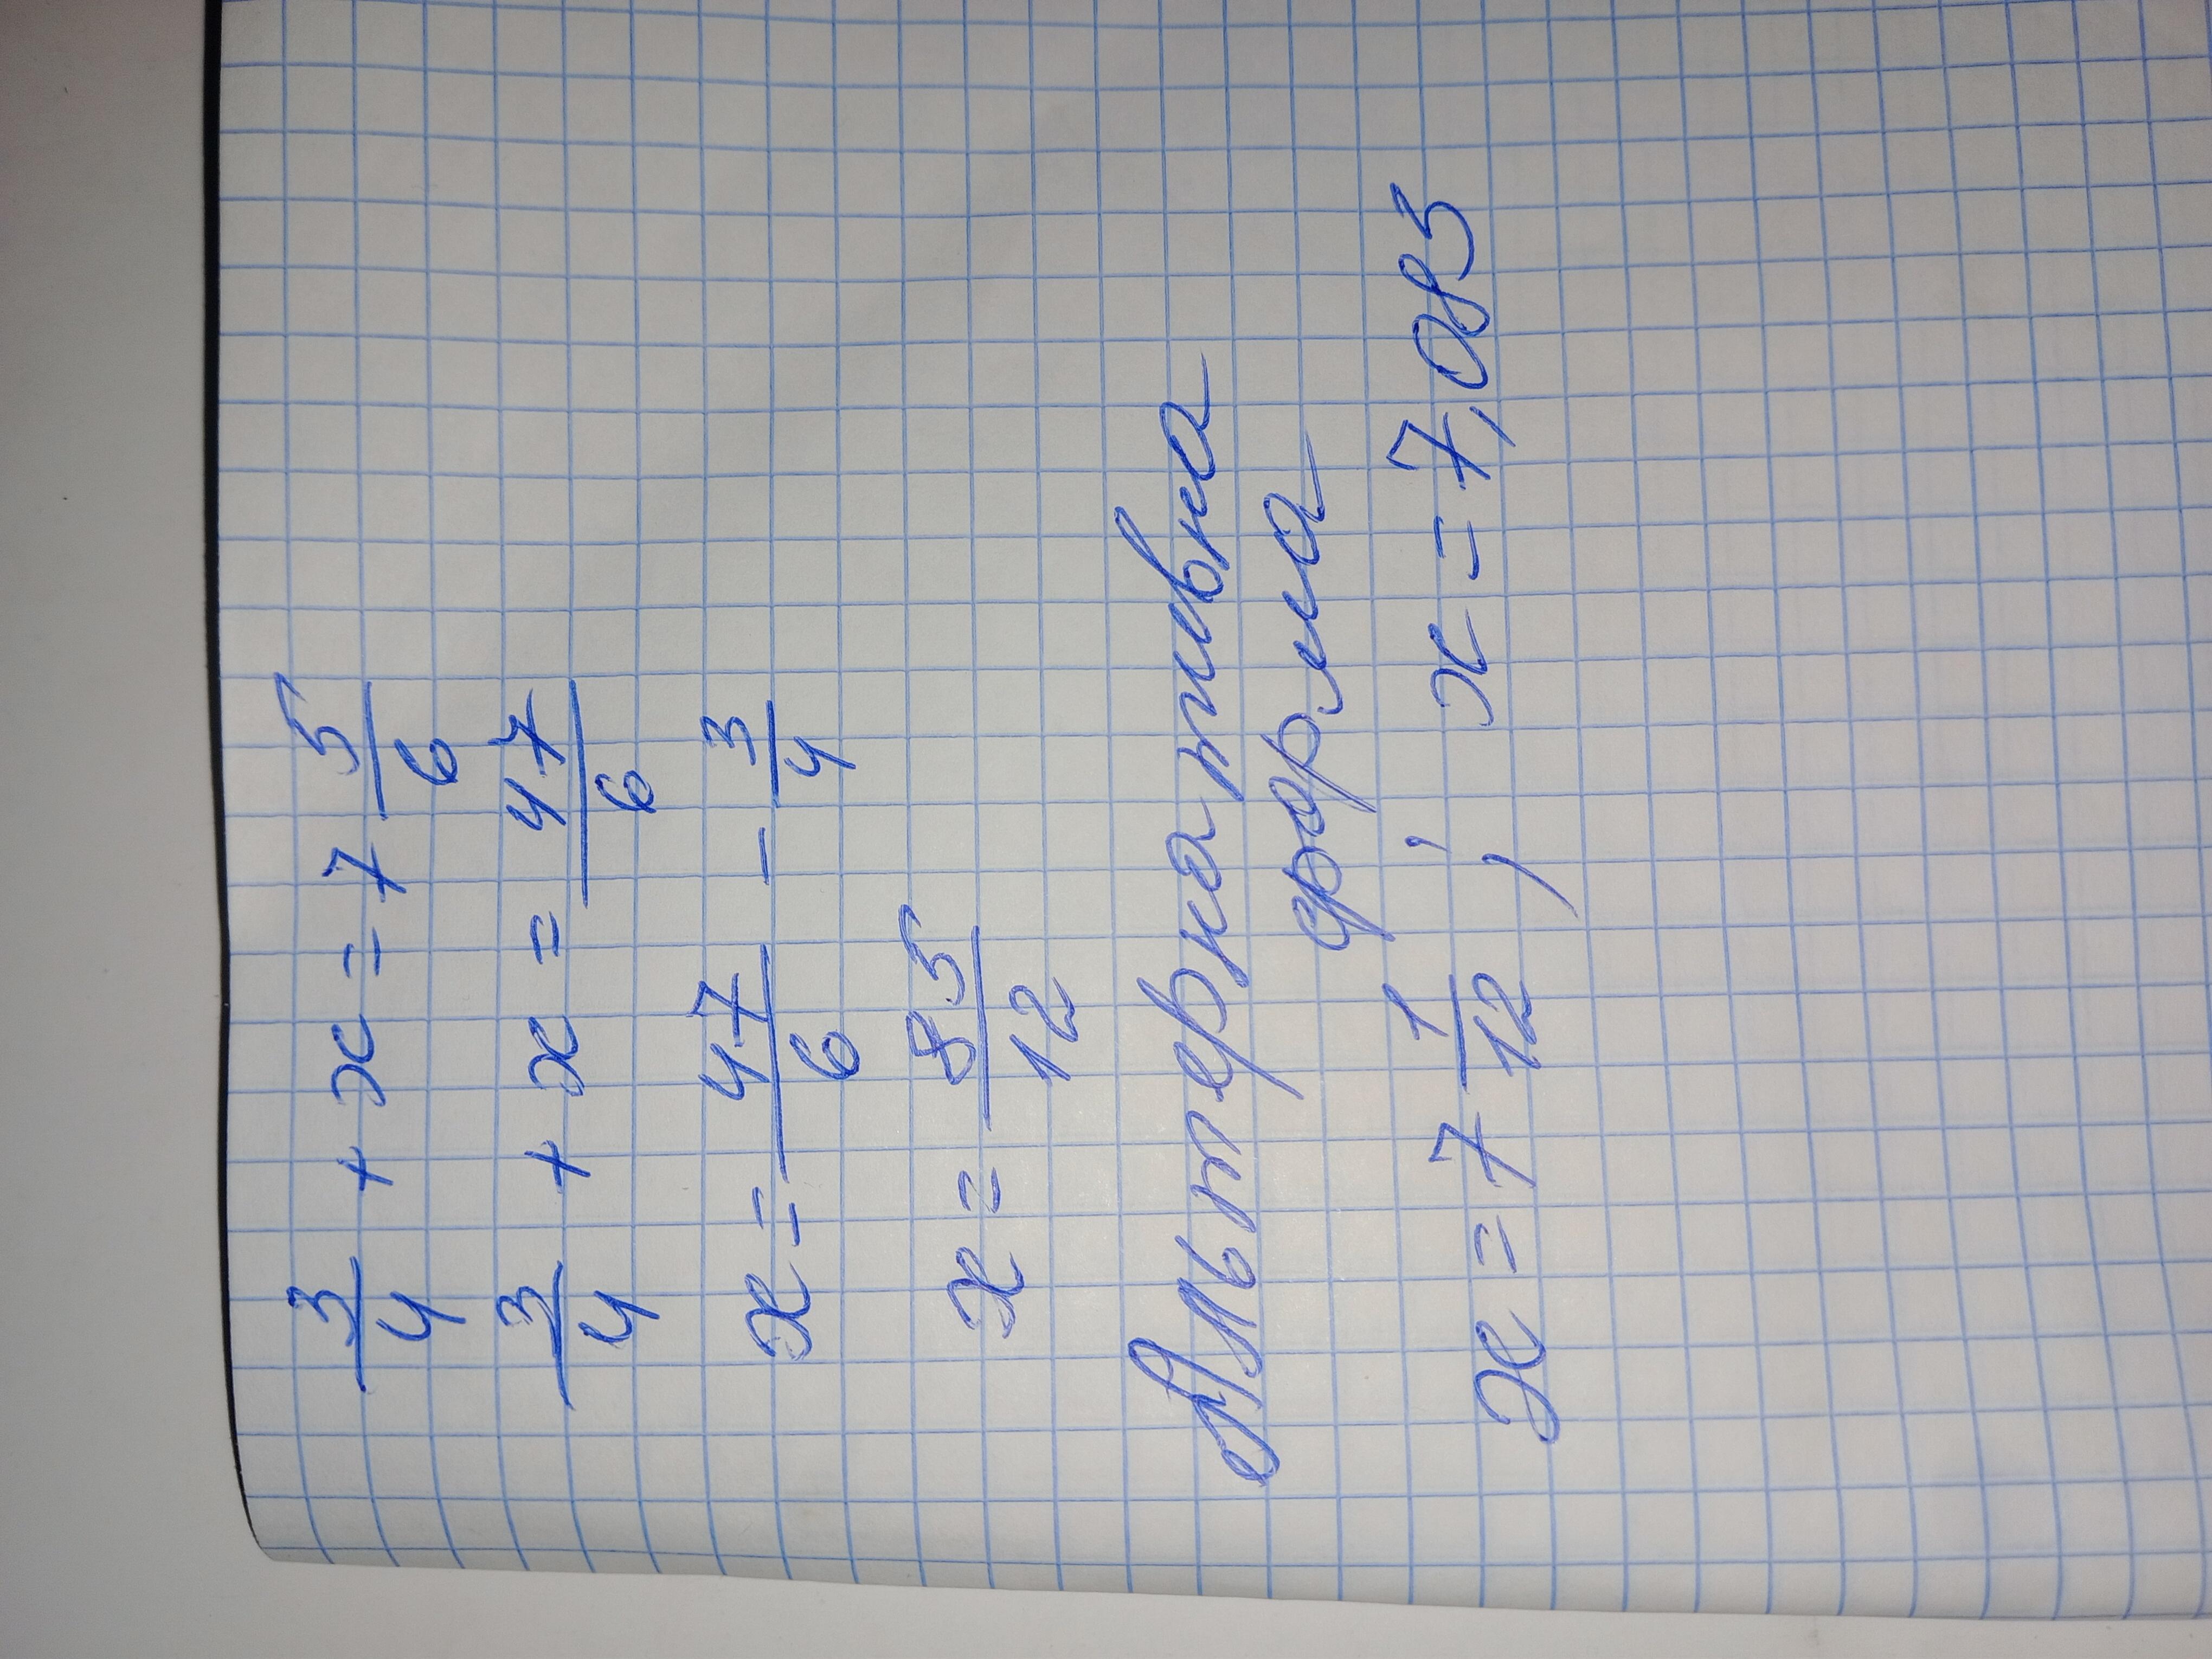 3/4 + x = 7 5/6
3/4 + x = 47/6
x = 47/6 - 3/4
x = 85/12
Альтернативна
форма
x = 7 1/12 ; x = 7,085